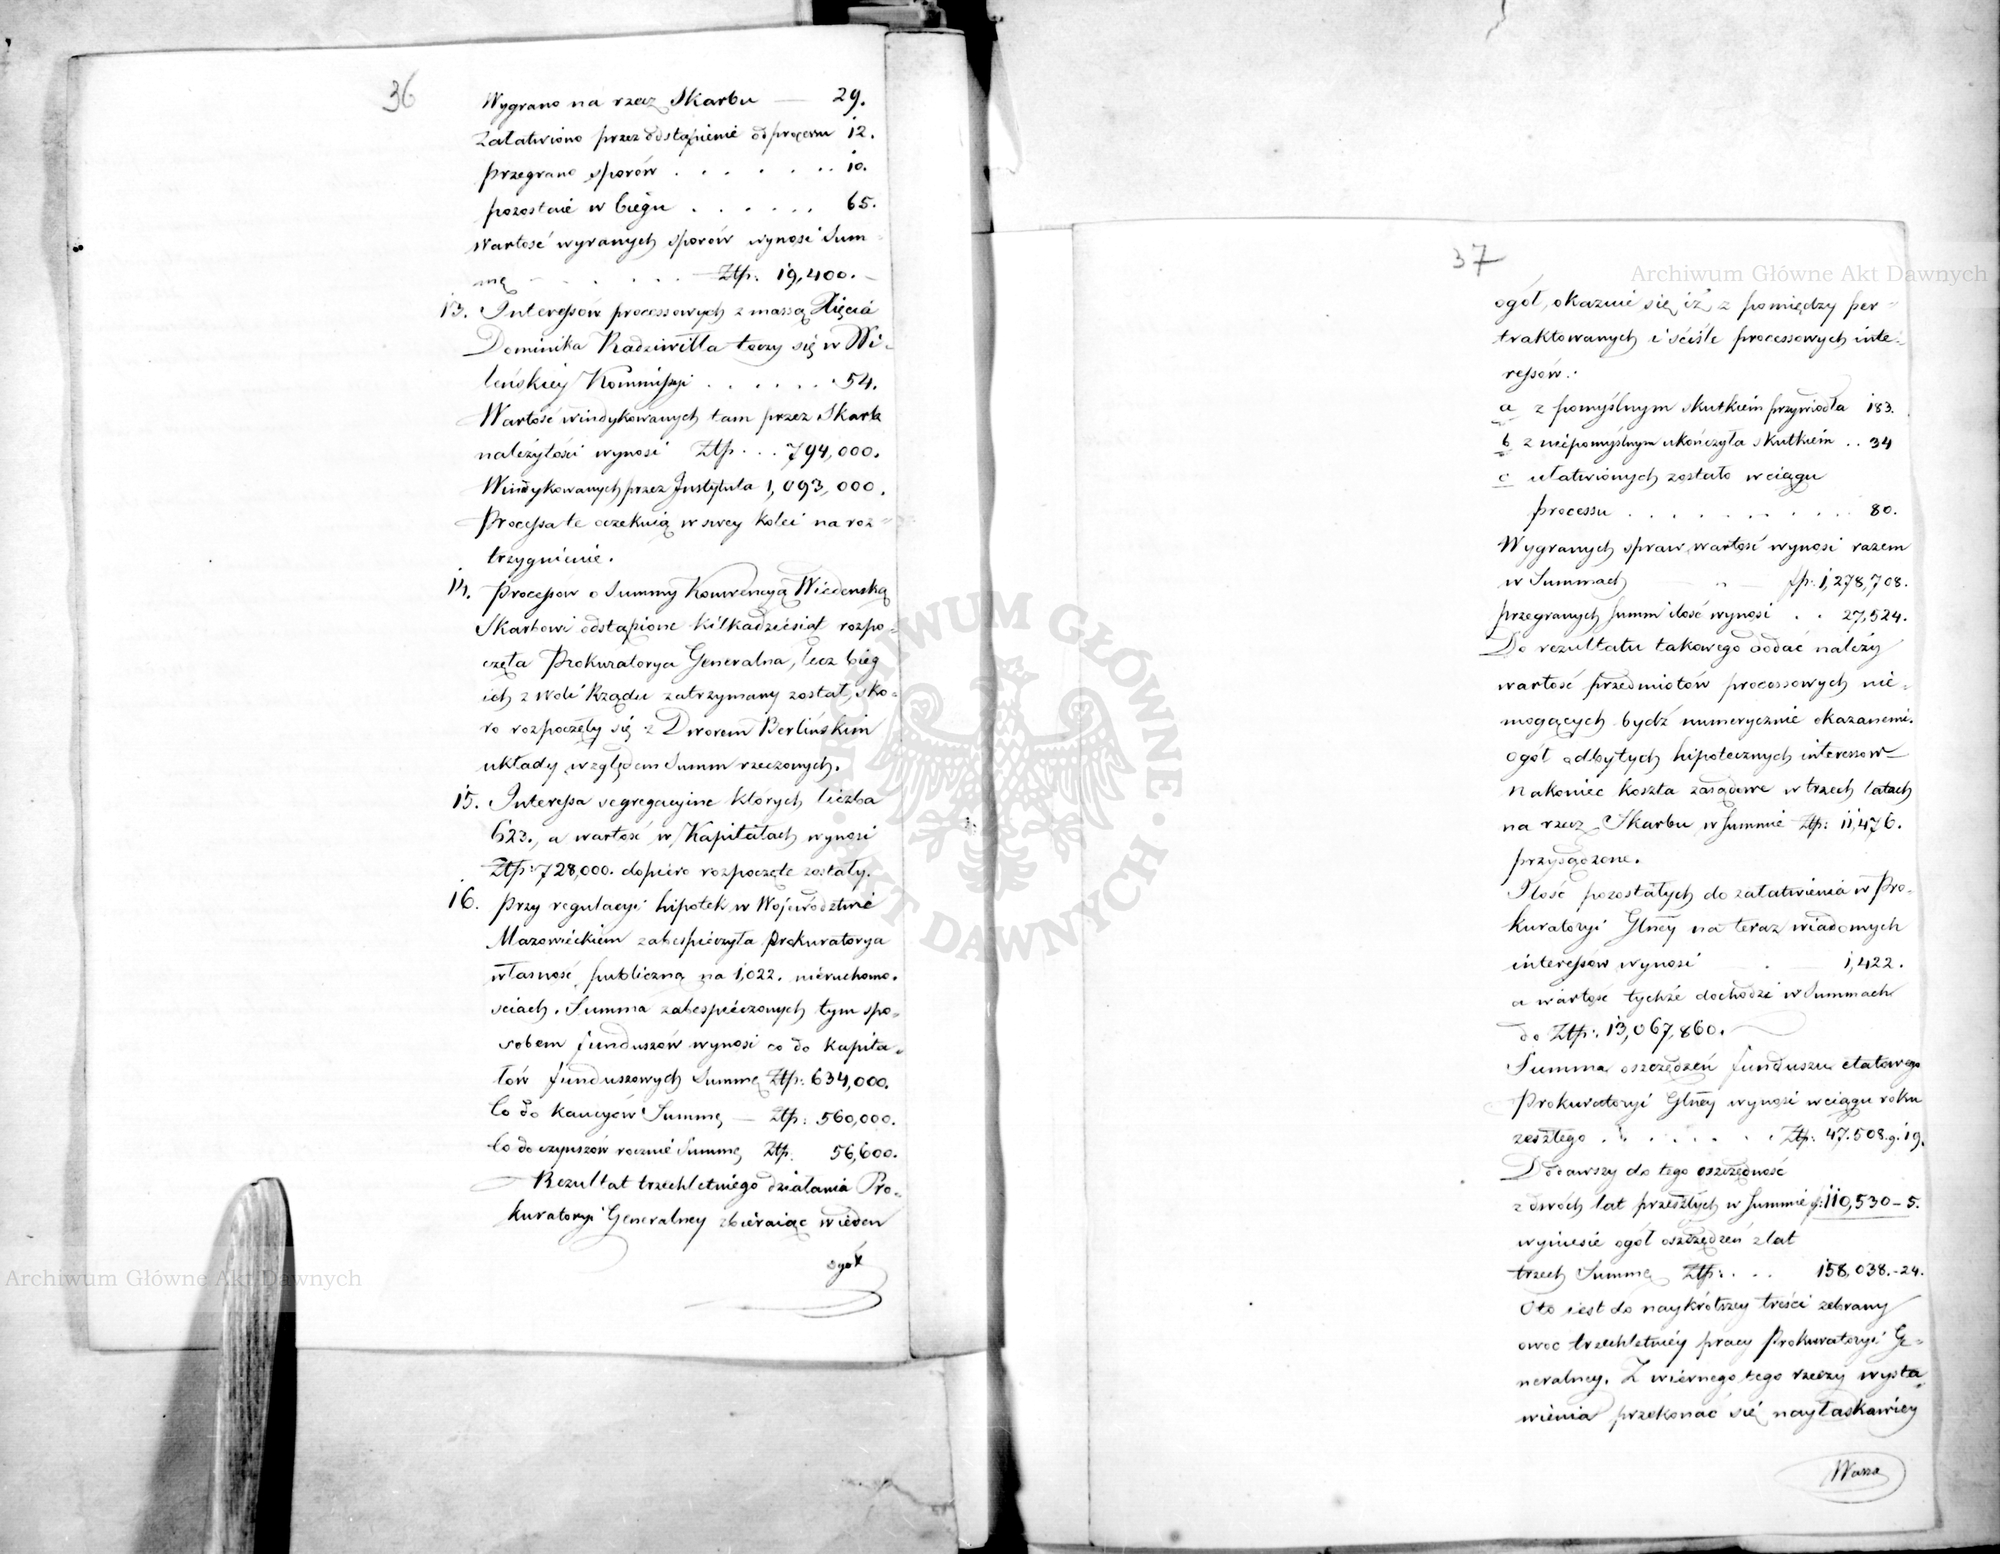 36
Wygrano na rzecz Skarbu — 29.
Załatwiono przez odstąpienie od procesu 12.
przegrano sporów . . . . . . . 10.
pozostaie w biegu . . . . . . 65.
Wartość wyranych sporów wynosi Sum-
mę - . . . . . Ztp: 19,400. —
13. Interessów processowych z massą Xięcia
Dominika Radziwiłła toczy się w Wi-
leńskiey Kommissyi . . . . . . 54.
Wartość windykowanych tam przez Skarb
należytości wynosi Ztp . . . 794,000.
Windykowanych przez Instytuta 1,093,000.
Processa te oczekuią w swey kolei na roz-
trzygnienie.
14. Processow o Summy Konwencyą Wiedenską
Skarbowi odstąpione kilkadziesiąt rozpo-
częła Prokuratorya Generalna, lecz bieg
ich z woli Rządu zatrzymany został, sko-
ro rozpoczęły się z Dworem Berlińskim
układy względem Summ rzeczonych.
15. Interessa segregacyine których liczba
623., a wartość w Kapitałach wynosi
Ztp: 728,000. dopiero rozpoczęte zostały.
16. Przy regulacyi hipotek w Województwie
Mazowieckiem zabespieczyła Prokuratorya
własność publiczną na 1,022. nieruchomo-
sciach. Summa zabespieczonych tym spo-
sobem funduszów wynosi co do kapita-
łów funduszowych Summę Ztp: 634,000.
Co do kaucyów Summę — Ztp: 560,000.
Co do czynszów rocznie Summę Ztp. 56,600.
Rezultat trzechletniego działania Pro-
kuratoryi Generalney zbieraiąc w ieden
ogół
37
ogół, okazuie się iż z pomiędzy per-
traktowanych i ściśle processowych inte-
ressów:
a z pomyślnym skutkiem przywiodła 183.
b z niepomyślnym ukończyła skutkiem . . 34
c ułatwionych zostało w ciągu
processu . . . . . . . . . . 80.
Wygranych spraw wartość wynosi razem
w Summach — " — fp: 1,278,708.
przegranych summ ilość wynosi . . 27,524.
Do rezultatu takowego dodać należy
wartość przedmiotów processowych nie-
mogących bydź numerycznie okazanemi.
ogół odbytych hipotecznych interessow
Nakoniec koszta zasądowe w trzech latach
na rzecz Skarbu w summie Ztp: 11,476.
przysądzone.
Ilość pozostałych do załatwienia w Pro-
kuratoryi Glney na teraz wiadomych
interessów wynosi . — 1,422.
a wartość tychże dochodzi w Summach
do Ztp: 13,067,860.
Summa oszczędzeń funduszu etatowego
Prokuratoryi Glney wynosi w ciągu roku
zeszłego . . . . . . . Ztp: 47.508. g. 19.
Dodawszy do tego oszczędność
z dwóch lat przeszłych w summie f: 110,530 – 5.
wyniesie ogół oszczędzeń z lat
trzech Summę Ztp: . . . 158,038. - 24.
Oto iest do naykrótszey treści zebrany
owoc trzechletniey pracy Prokuratoryi Ge-
neralney. Z wiernego tego rzeczy wysta-
wienia przekonać się nayłaskawiey
Wasza
Archiwum Główne Akt Dawnych
Archiwum Główne Akt Dawnych
ARCHIWUM GŁÓWNE · AKT DAWNYCH ·